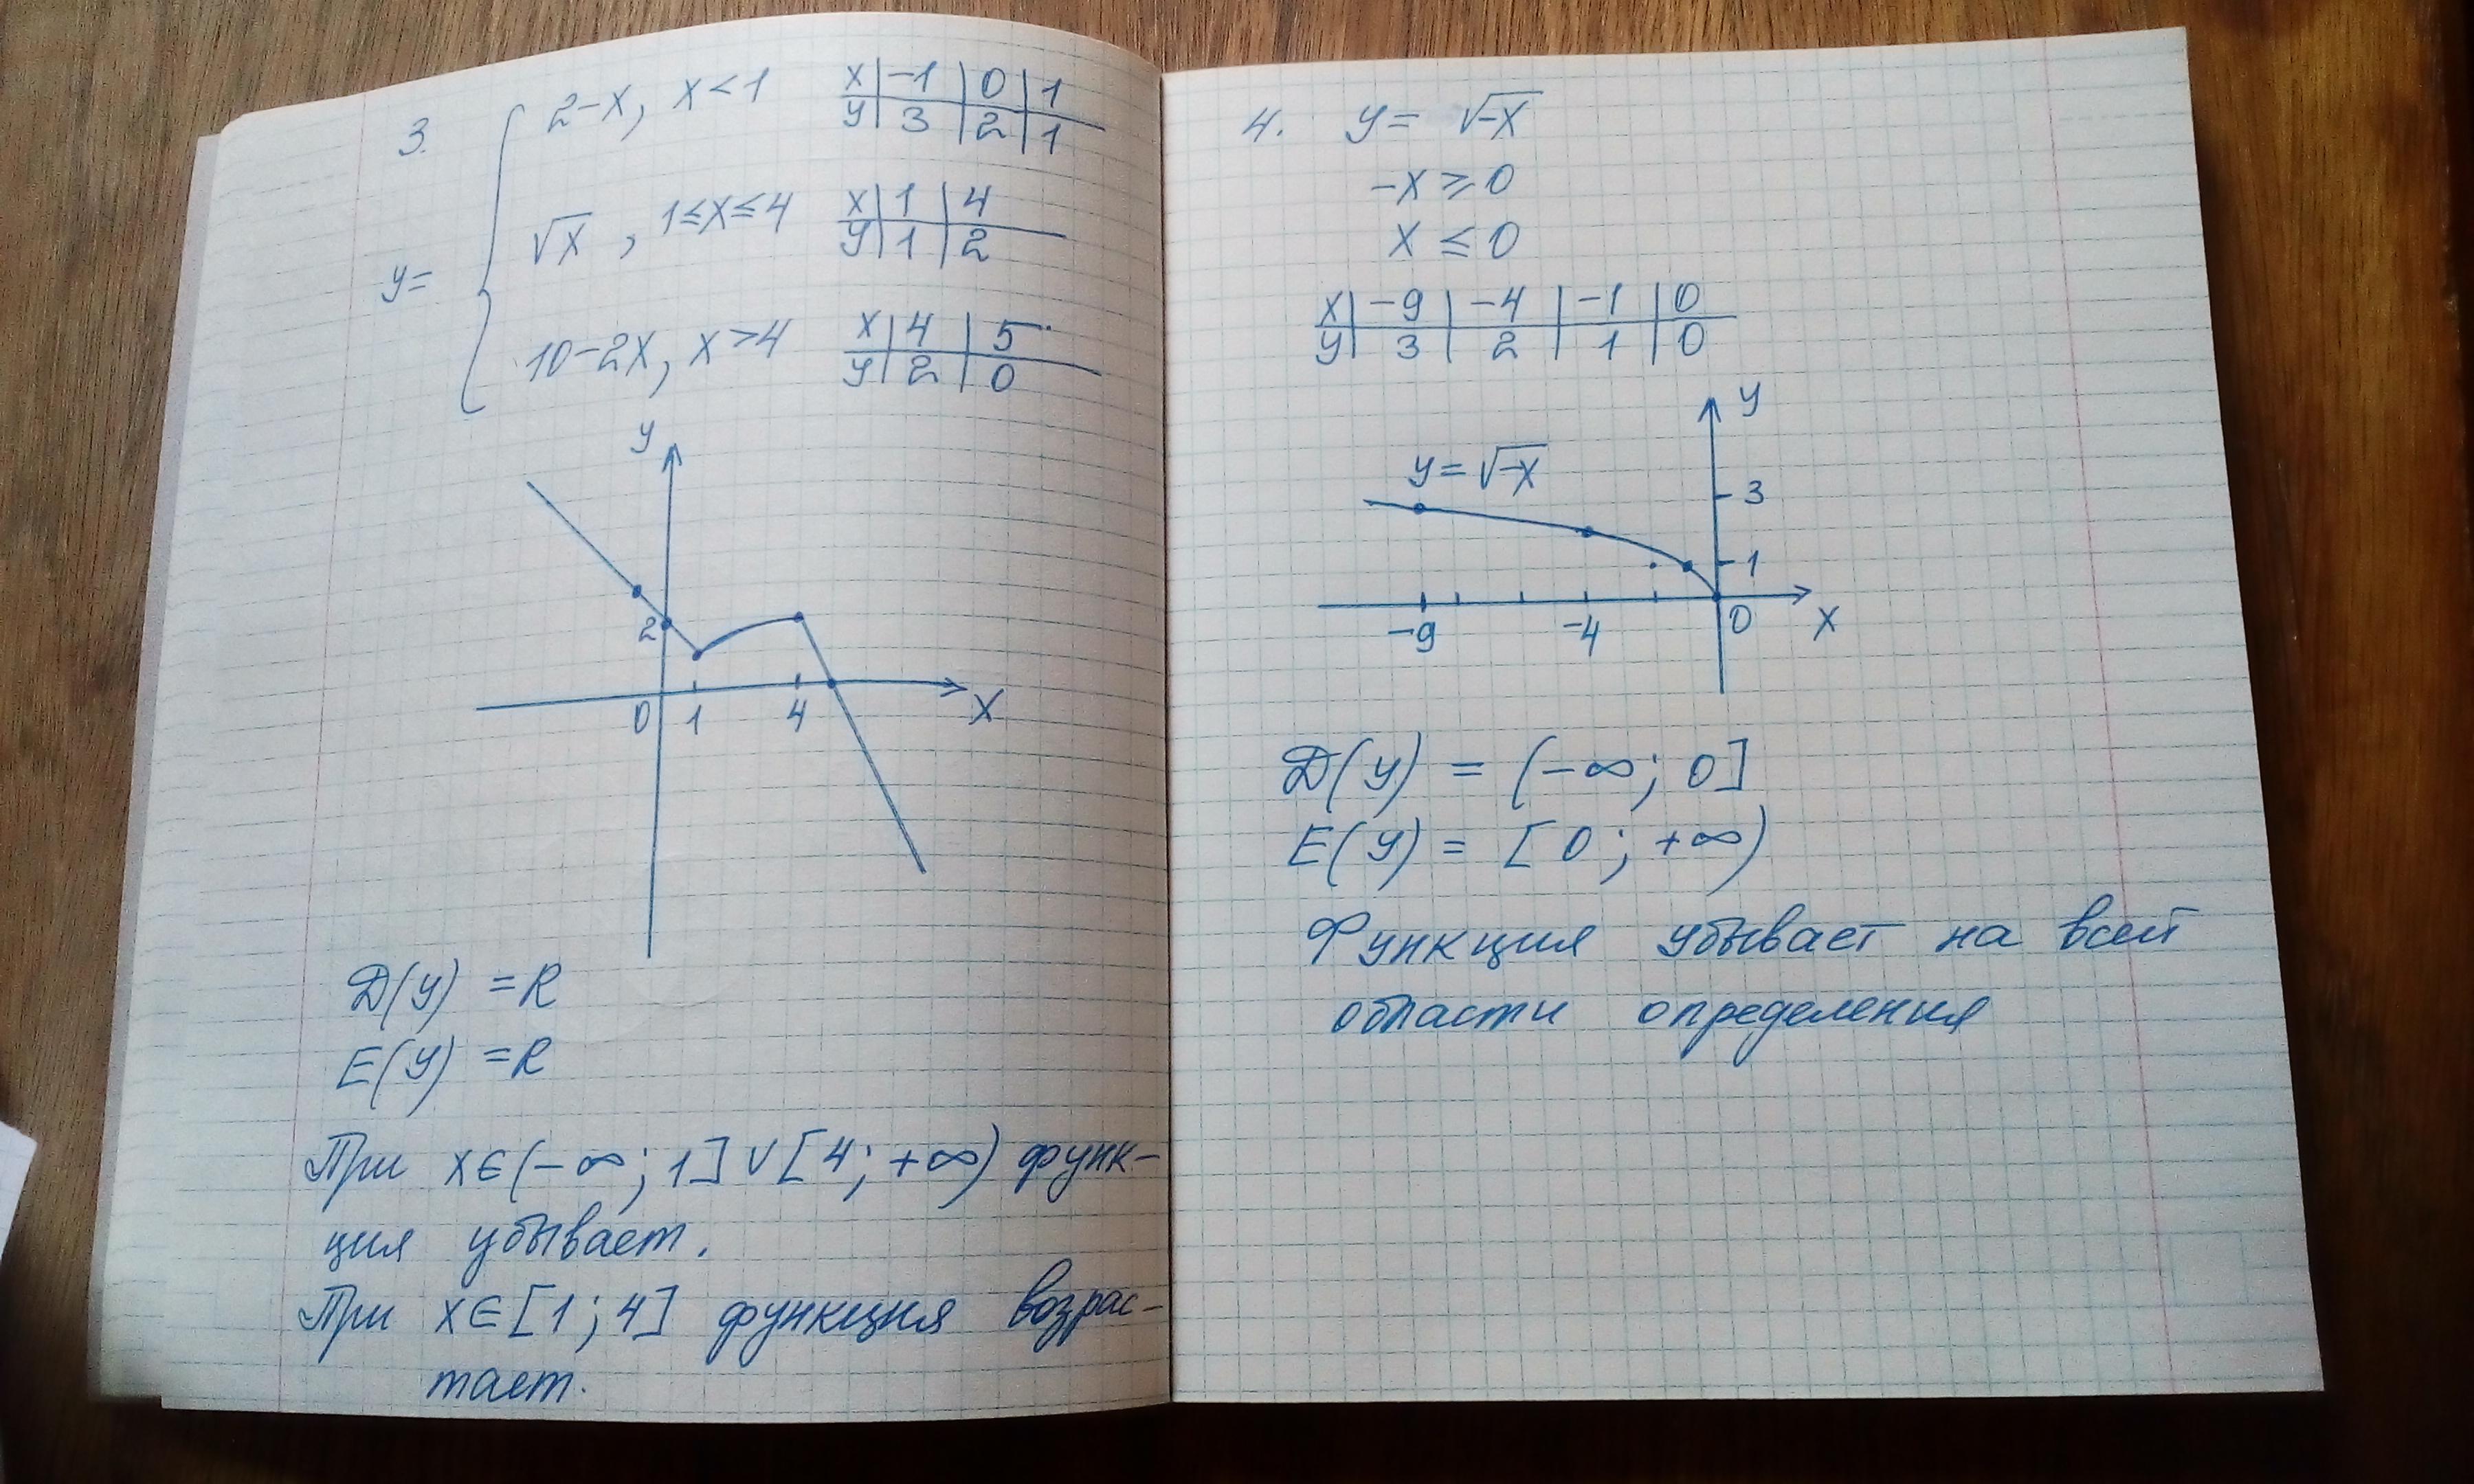 3.
y=
2-x, x<1
x | -1 | 0 | 1
y | 3 | 2 | 1
√x , 1≤x≤4
x | 1 | 4
y | 1 | 2
10-2x, x>4
x | 4 | 5
y | 2 | 0
y
2
0 1 4 x
D(y) =R
E(y) =R
При x∈(-∞; 1]∨[4; +∞) функ-
ция убывает.
При x∈[1; 4] функция возрас-
тает.
4. y= √-x
-x ≥ 0
x ≤ 0
x | -9 | -4 | -1 | 0
y | 3 | 2 | 1 | 0
y
y= √-x
3
1
-9 -4 0 x
D(y) = (-∞; 0]
E(y) = [0; +∞)
Функция убывает на всей
области определения